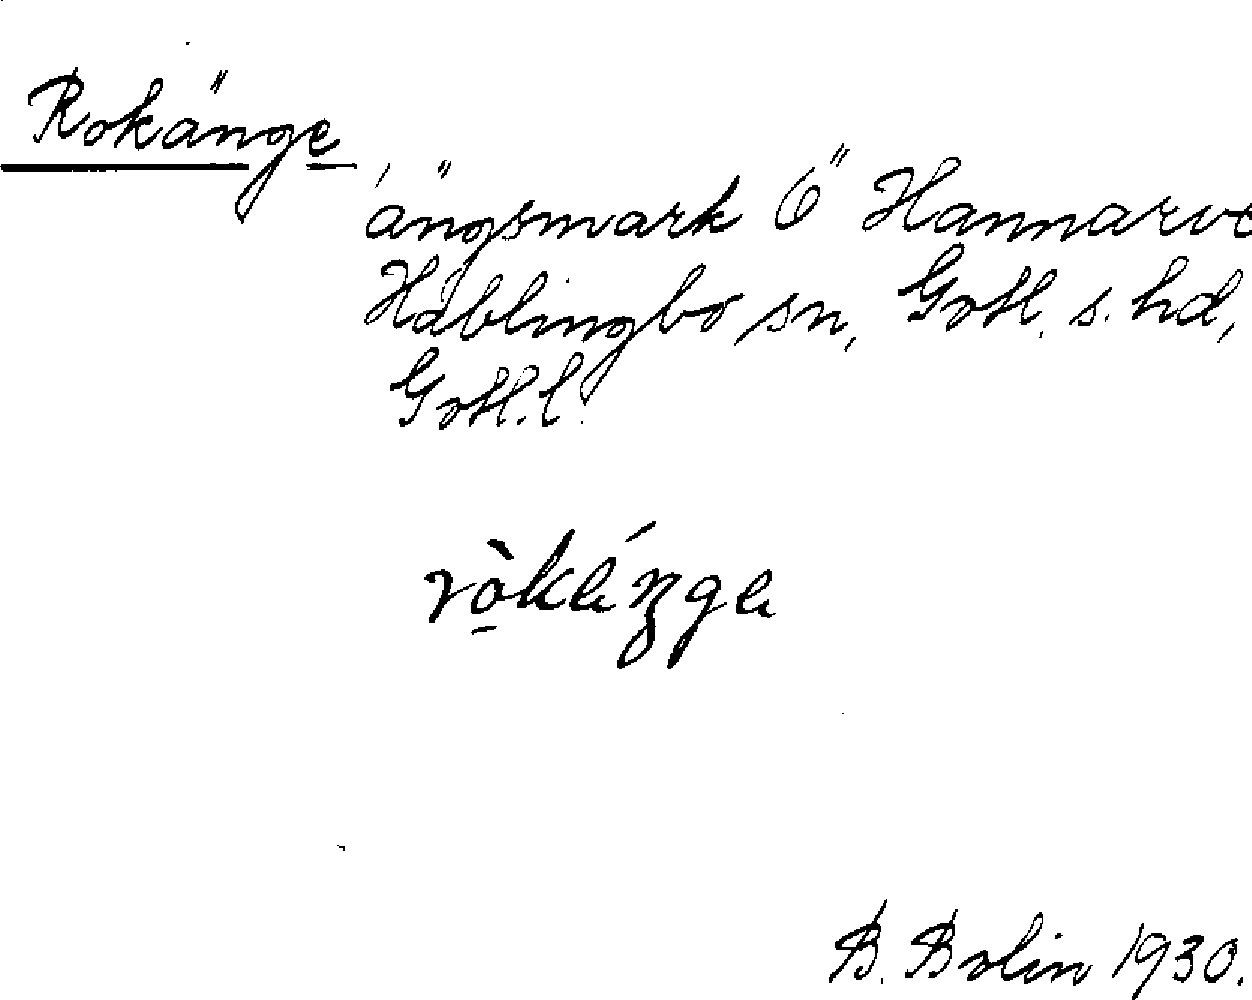 Rokänge
ängsmark Ö Hannarve
Håblingbo sn, Gotl. s. hd,
Gotl. l.
B. Bolin 1930.